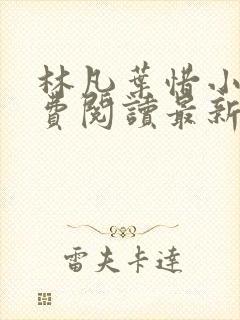 林凡葉惜小
費閱讀最新
雷夫卡達